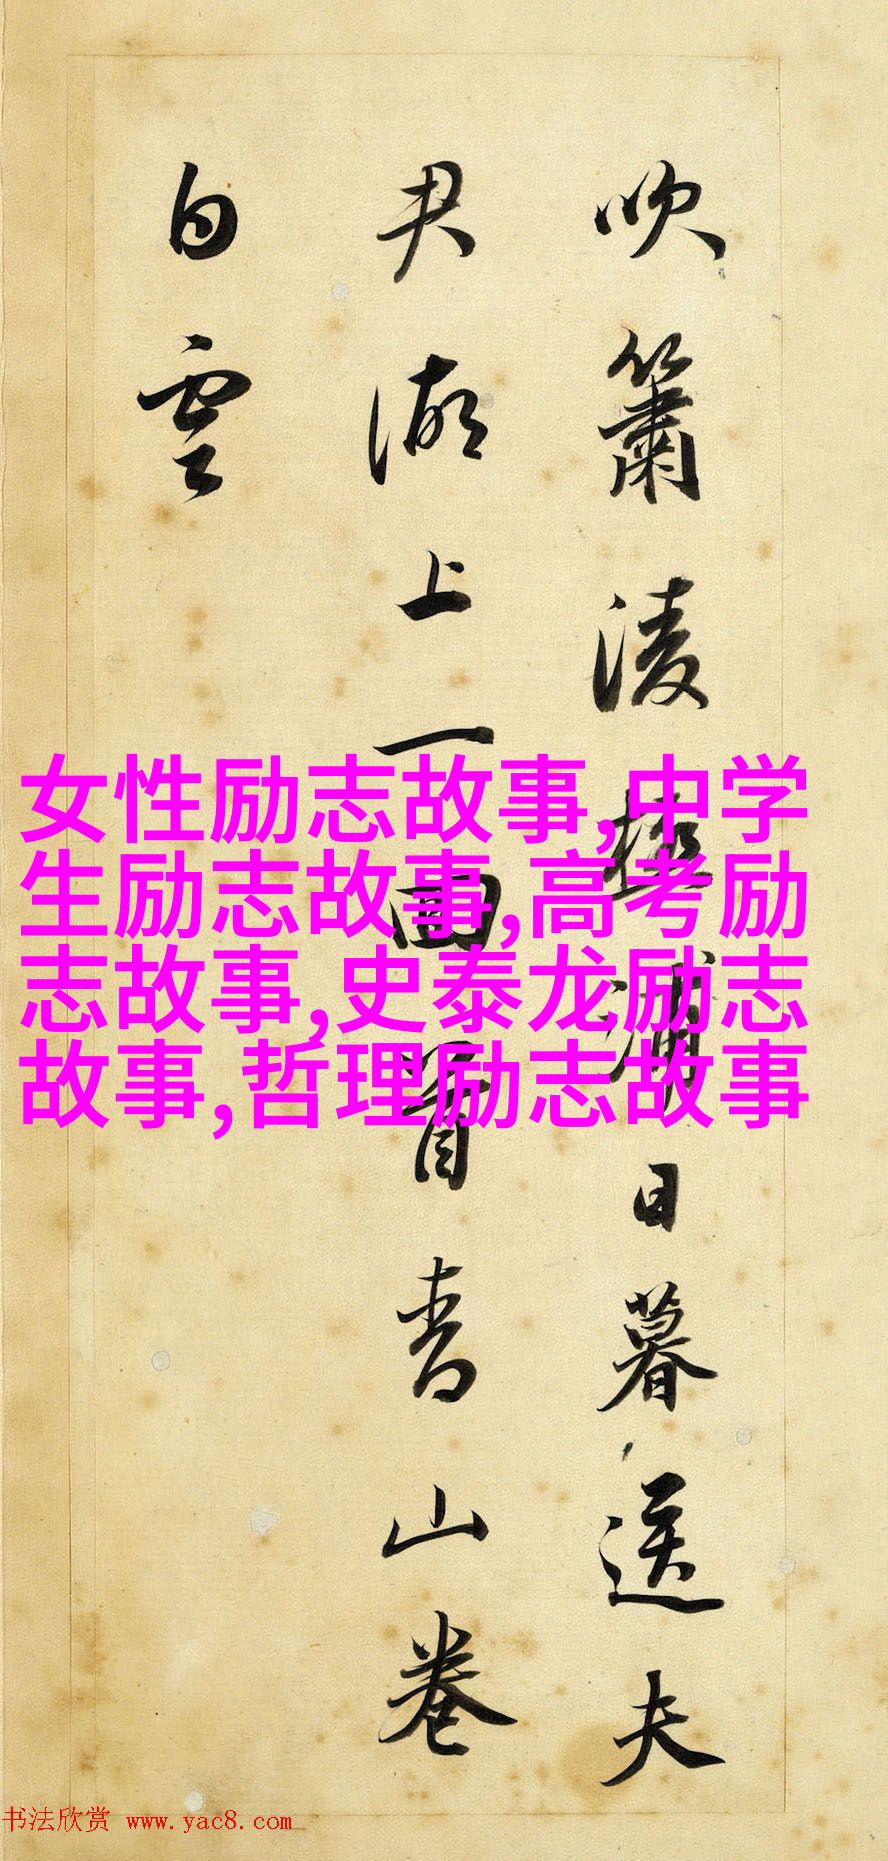 吹簫凌極浦日暮送夫
君湖上一回首青山卷
白雲
女性励志故事,中学
生励志故事,高考励
志故事,史泰龙励志
故事,哲理励志故事
书法欣赏 www.yac8.com